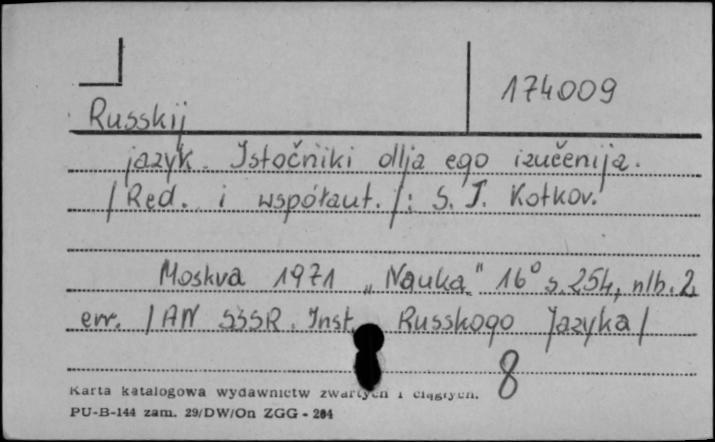 174009
Russkij
jazyk. Istočniki dlja ego izučenija.
/Red. i współaut./: S. I. Kotkov.
Moskva 1971 „Nauka" 16° s. 254, nlb. 2,
err. /AN SSSR. Inst. Russkogo Jazyka/
8
Karta katalogowa wydawnictw zwartych i ciągłych.
PU-B-144 zam. 29/DW/On ZGG - 284